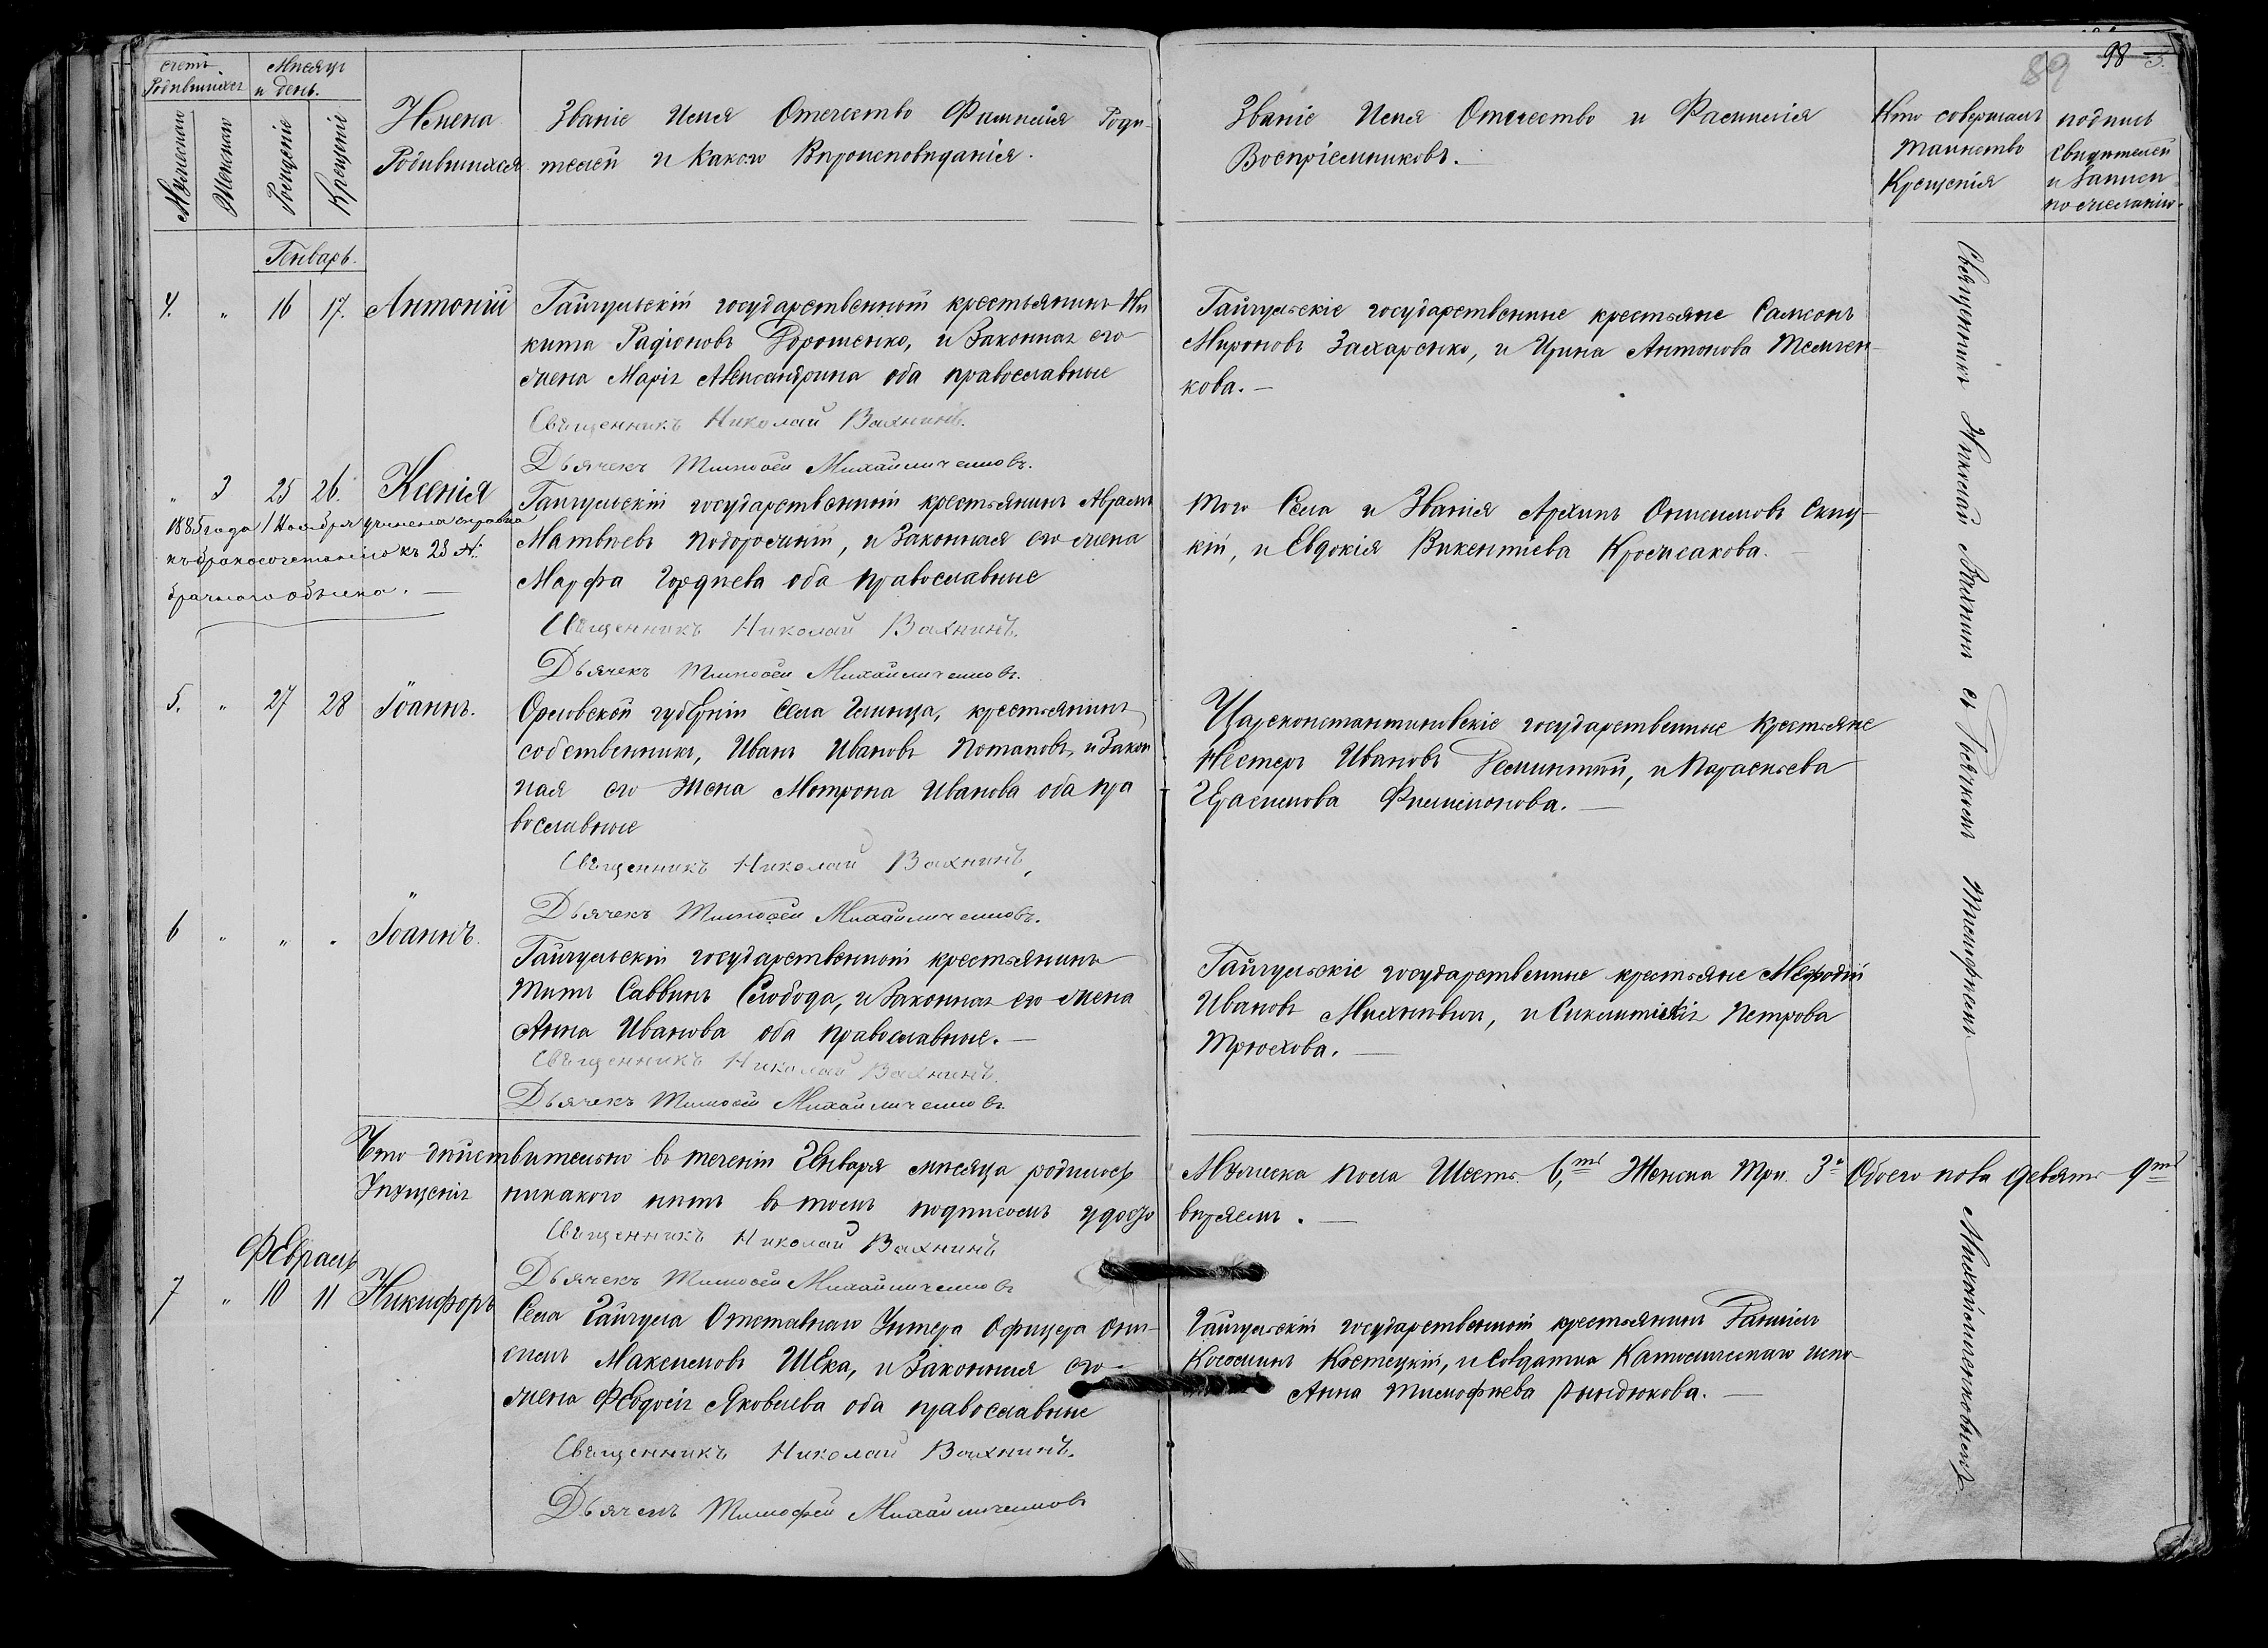 счетъ
Родившихся
Мѣсяцъ
и день.
Мужескаго
Женскаго
Рожденіе
Крещеніе
Имена
Родившихся
Званіе Имя Отечество Фамилія Роди-
телей и Какого Вѣроисповѣданія.
Званіе Имя Отчество и Фамилія
Воспріемниковъ.
Кто совершалъ
таинство
Крещенія
подпись
свидѣтелей
и Записи
по желанію.
89
98
Генварь.
4. " 16 17. Антоній
Гайчульскій государственный крестьянинъ Ни
кита Радіоновъ Дорошенко, и Законная его
жена Марія Александрина оба православные
Священникъ Николай Вахнинъ.
Дьячекъ Тимоѳей Михайличенковъ.
Гайчульскіе государственные крестьяне Самсонъ
Мироновъ Захаренко, и Ирина Антонова Темчен-
кова. —
" 3 25 26. Ксенія
1885 года 1 Ноября учинена справка
къ бракосочетанію къ 23 №:
брачнаго обыска. —
Гайчульскій государственный крестьянинъ Авраамъ
Матвѣевъ Подорожній, и Законная его жена
Марфа Гордѣева оба православные
Священникъ Николай Вахнинъ.
Дьячекъ Тимоѳей Михайличенковъ.
того Села и Званія Архипъ Онисимовъ
и Евдокія Викентіева
5. " 27 28 Іоаннъ.
Орловской губерніи Села крестьянинъ
собственникъ, Иванъ Ивановъ Потаповъ, и Закон
ная его жена Матрона Иванова оба пра
вославные
Священникъ Николай Вахнинъ,
Дьячекъ Тимоѳей Михайличенковъ.
Цареконстантиновскіе государственные крестьяне
Нестеръ Ивановъ и Параскева
Герасимова Филимонова. —
6 " " " Іоаннъ.
Гайчульскій государственный крестьянинъ
Титъ Саввинъ Слобода, и Законная его жена
Анна Иванова оба православные. —
Священникъ Николай Вахнинъ.
Дьячекъ Тимоѳей Михайличенковъ.
Гайчульскіе государственные крестьяне Меѳодій
Ивановъ и Петрова
Трюхова. —
Что дѣйствительно въ теченіи Генваря мѣсяца родилось
Мужеска пола Шесть. 6,ть Женска Три. 3и Обоего пола девять 9ть
Упущенія никакого нѣтъ въ томъ подписомъ удосто
вѣряемъ. —
Священникъ Николай Вахнинъ
Дьячекъ Тимоѳей Михайличенковъ
Февраль
7 " 10 11 Никифоръ
Села Гайчула Отставнаго Унтера Офицера Они-
симъ Максимовъ Шека, и Законная его
жена Феодосія Яковлева оба православные
Священникъ Николай Вахнинъ.
Дьячекъ Тимофей Михайличенковъ
Гайчульскій государственный крестьянинъ Даніилъ
Костецкій, и Солдатка
Анна Тимофѣева —
Священникъ Николай Вахнинъ съ Дьячкомъ Тимофѣемъ
Михайличенковымъ.